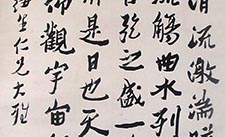 清流激湍暎
流觴曲水列
弦之盛一
情是日也天
仰觀宇宙
仁兄大雅